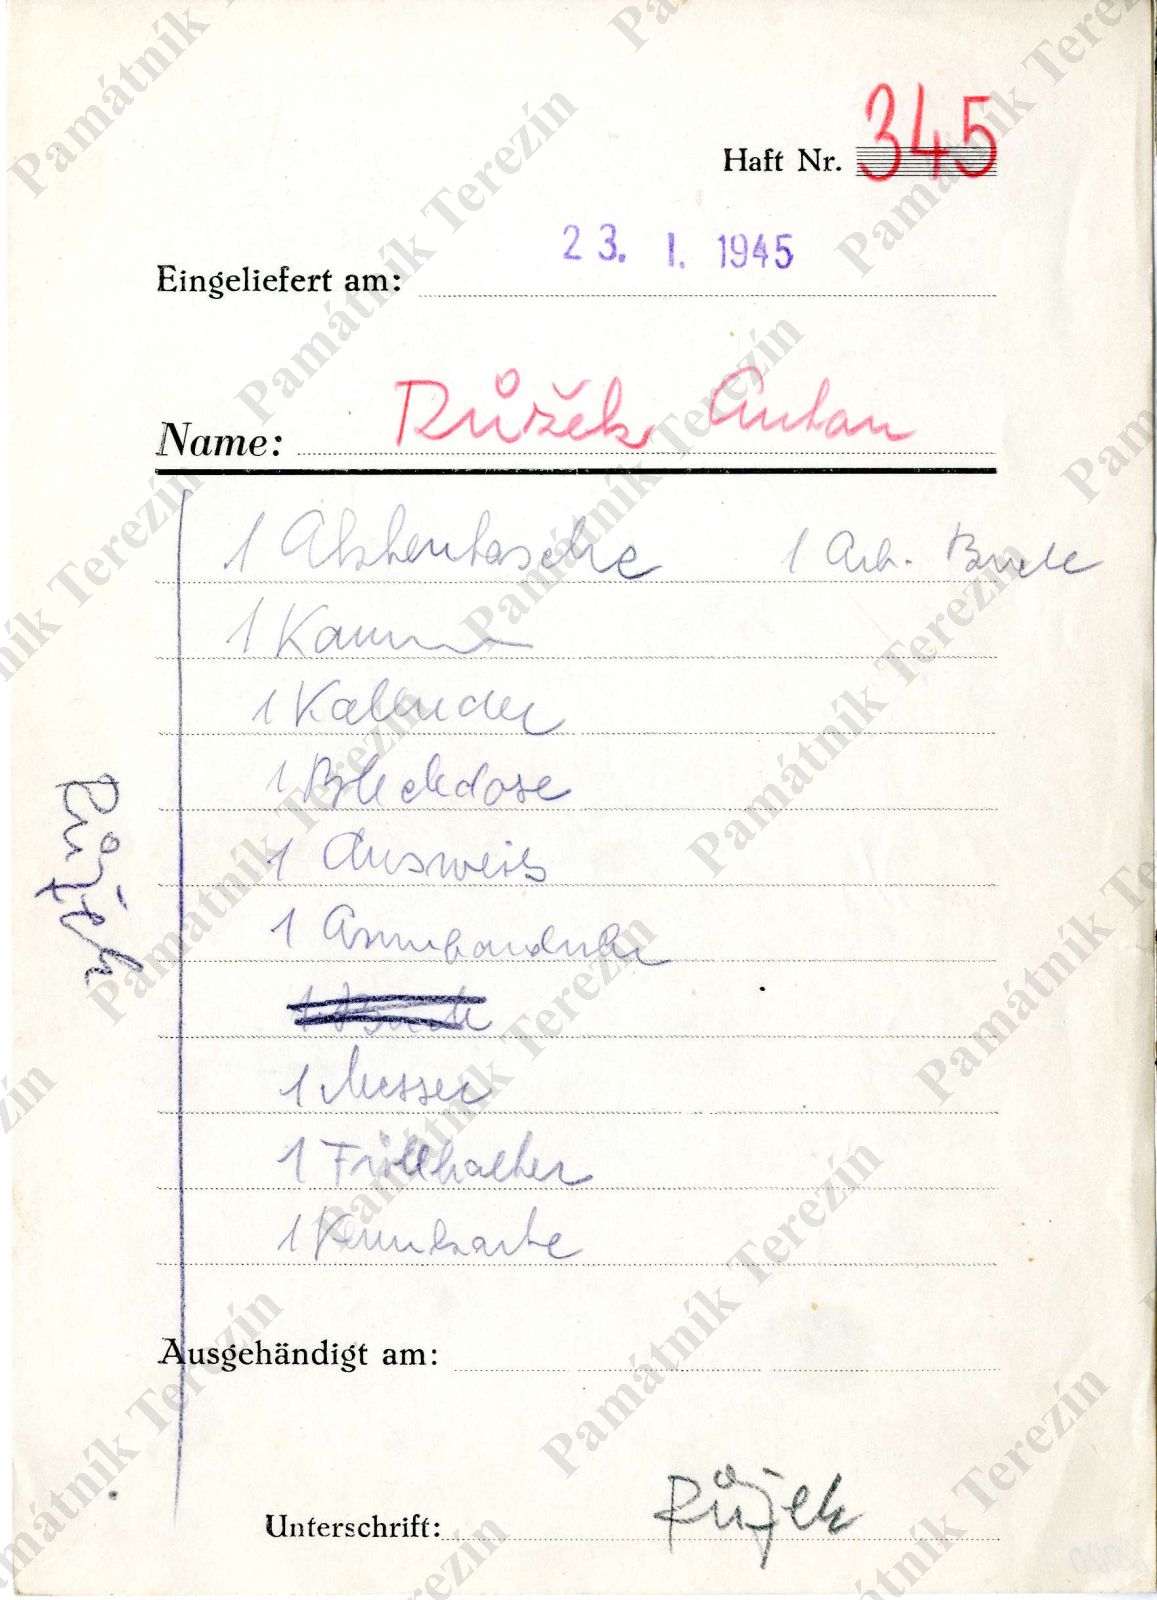 Haft Nr. 345
Eingeliefert am: 23. I. 1945
Name: Růžek Anton
1 Aktentasche 1 Arb. Buch
1 Kamm
1 Kalender
1 Blechdose
1 Ausweis
1 Armbanduhr
1 Messer
1 Füllhalter
1 Kennkarte
Růžek
Ausgehändigt am:
Unterschrift: Růžek
Památník Terezín